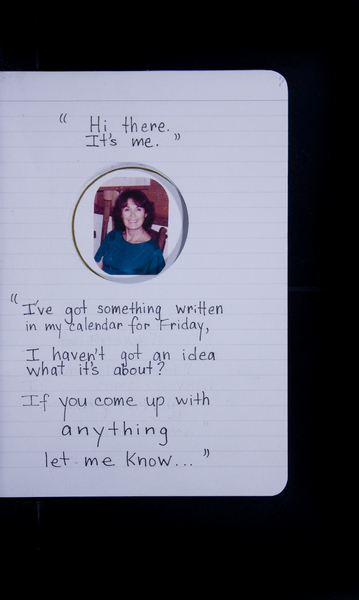 “ Hi there.
It's me. ”
“ I've got something written
in my calendar for Friday,
I haven't got an idea
what it's about?
If you come up with
anything
let me know... ”